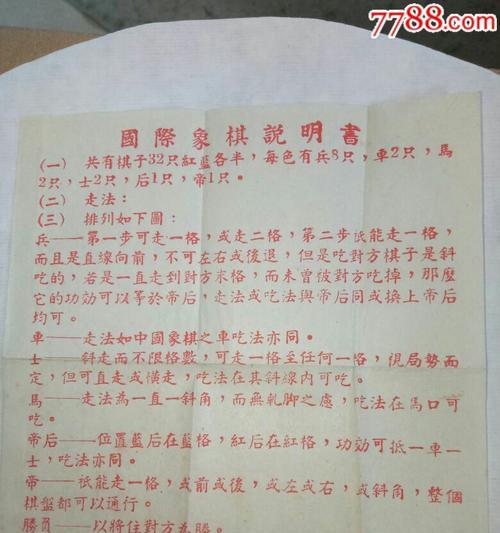 7788.com
國際象棋説明書
(一) 共有棋子32只紅藍各半，每色有兵8只，車2只，馬
2只，士2只，后1只，帝1只。
(二) 走法：
(三) 排列如下圖：
兵——第一步可走一格，或走二格，第二步祇能走一格，
而且是直線向前，不可左右或後退，但是吃對方棋子是斜
吃的，若是一直走到對方末格，而未曾被對方吃掉，那麼
它的功効可以等於帝后，走法或吃法與帝后同或換上帝后
均可。
車——走法如中國象棋之車吃法亦同。
士——斜走而不限格數，可走一格至任何一格，視局勢而
定，但可直走或橫走，吃法在其斜線内可吃。
馬——走法為一直一斜角，而無軋脚之慮，吃法在馬口可
吃。
帝后——位置藍后在藍格，紅后在紅格，功効可抵一車一
士，吃法亦同。
帝——祇能走一格，或前或後，或左或右，或斜角，整個
棋盤都可以通行。
勝負——以將住對方為勝。